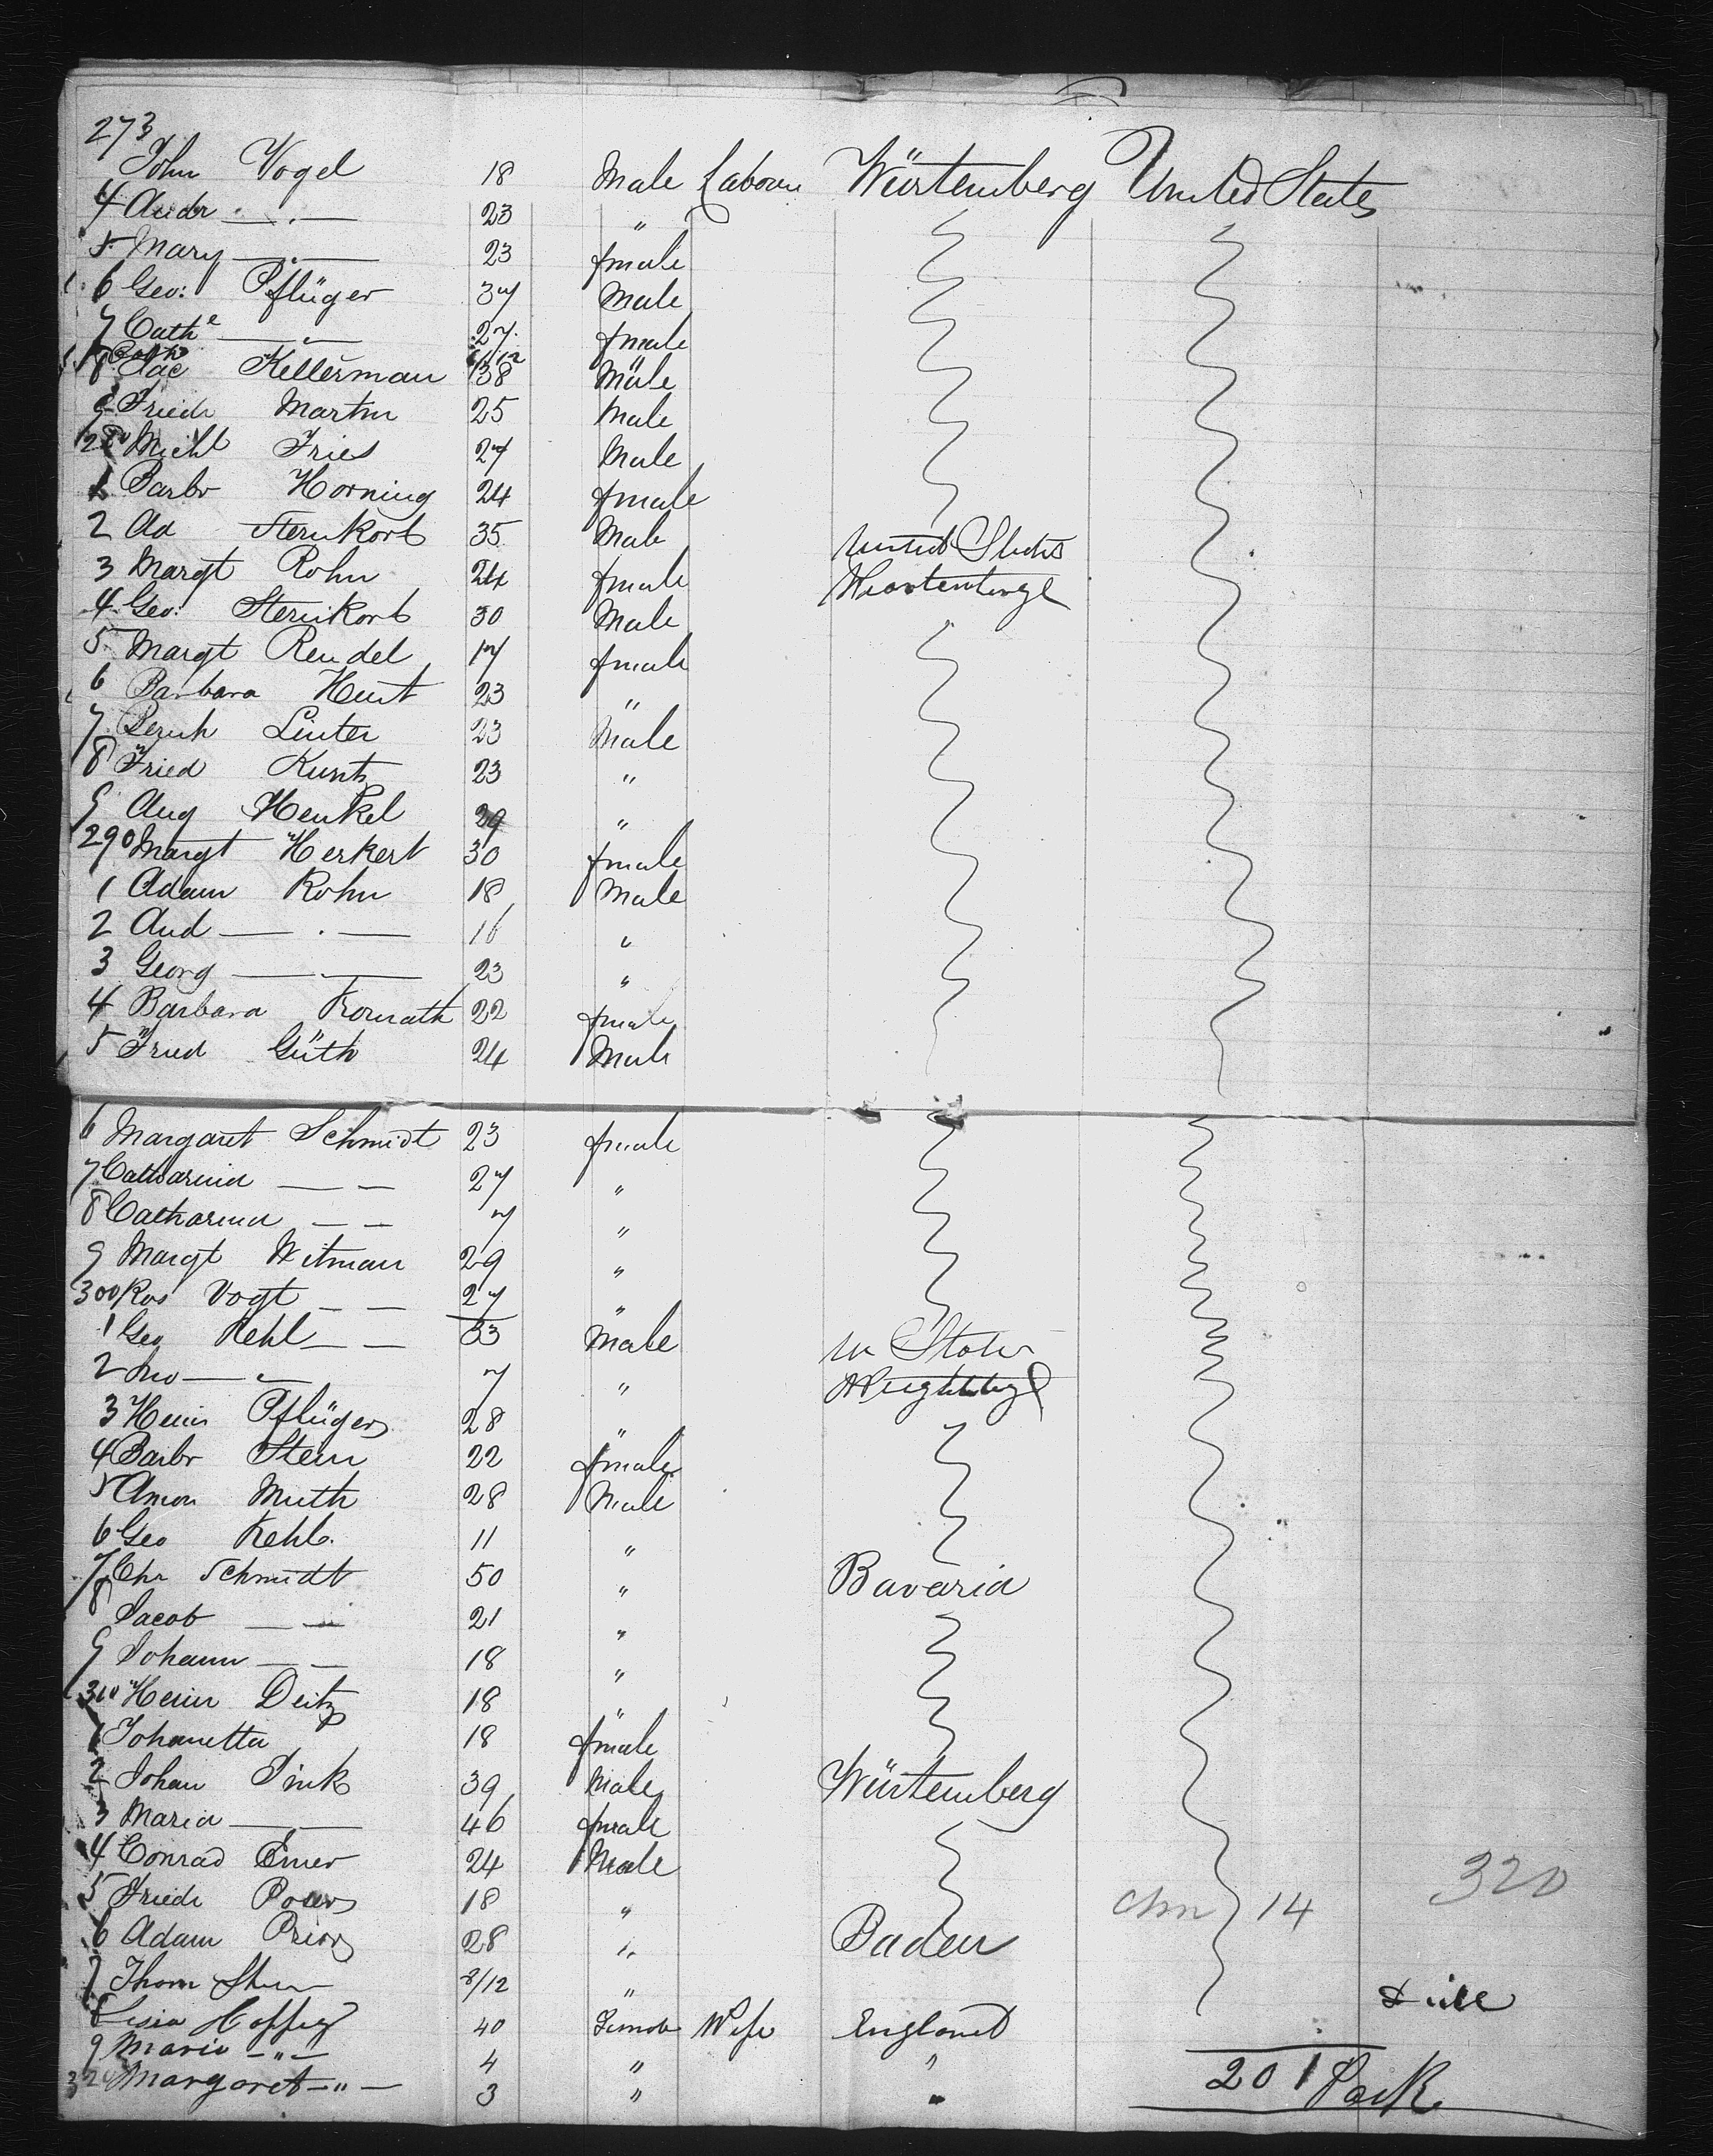 273
John Vogel 18 Male Labour Würtemberg United States
4 Andr — . — 23 "
5 Mary — . — 23 fmale
6 Geo: Pflüger 37 Male
7 Cathe — 27 fmale
8 Jac Kellerman 38 Male
9 Friedr Martin 25 Male
280 Michl Fries 27 Male
1 Barbr Horning 24 fmale
2 Ad Sternkorb 35 Male United States
3 Margt Rohn 24 fmale
4 Geo: Sternkorb 30 Male
5 Margt Rendel 17 fmale
6 Barbara Hent 23 "
7 Bernh Linter 23 Male
8 Fried Kuntz 23 "
9 Aug Henkel 29 "
290 Margt Herkert 30 fmale
1 Adam Rohn 18 Male
2 And — . — 16 "
3 Georg — 23 "
4 Barbara 22 fmale
5 Fried Güth 24 Male
6 Margaret Schmidt 23 fmale
7 Catharina — — 27 "
8 Catharina — — 7 "
9 Margt Witman 29 "
300 Ros Vogt — — 27 "
1 Geo Kehl — — 33 Male Un States
2 — 7 "
3 Heinr Pflüger 28 "
4 Barbr Stein 22 fmale
5 Muth 28 Male
6 Geo Kehl 11 "
7 Chr Schmidt 50 " Bavaria
8 Jacob — — 21 "
9 Johann — — 18 "
310 Heinr Deitz 18 "
1 Johanetta 18 fmale
2 Johan Fink 39 Male Würtemberg
3 Maria — 46 fmale
4 Conrad 24 Male
5 Friedr 18 " chn 14 320
6 Adam Prior 28 " Baden
7 Thom 8/12 "
8 40 Female Wife England
9 Maria — " — 4 " "
320 Margaret — " — 3 " "
201